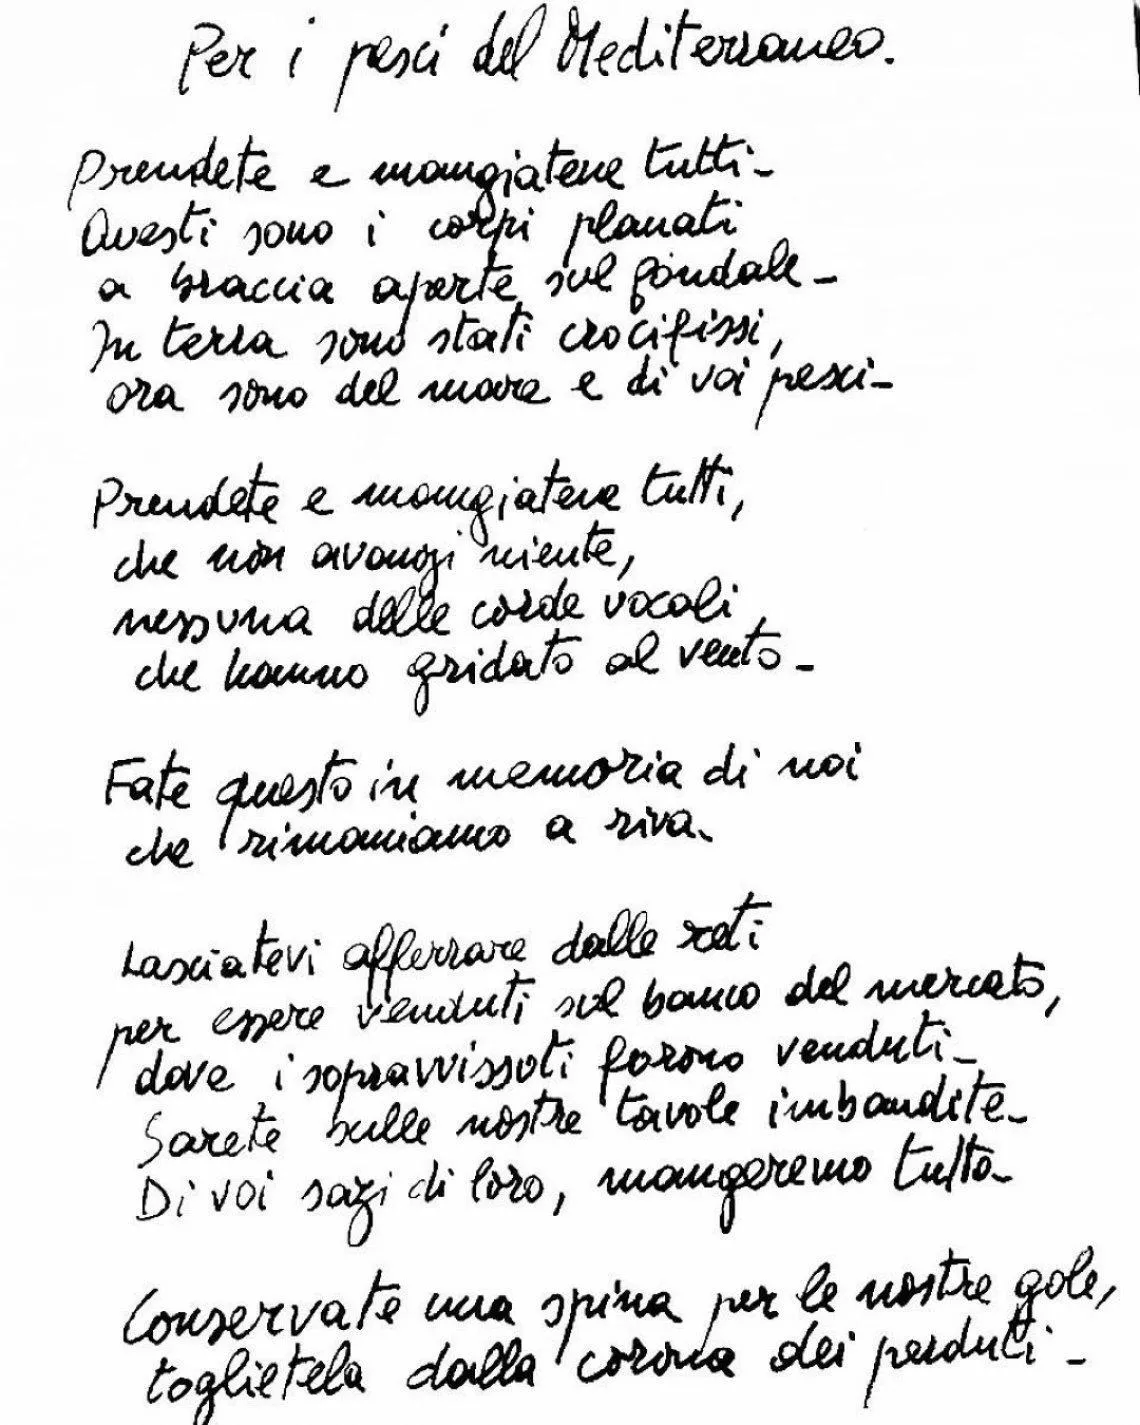 Per i pesci del Mediterraneo.
Prendete e mangiatene tutti-
Questi sono i corpi planati
a braccia aperte sul fondale-
In terra sono stati crocifissi,
ora sono del mare e di voi pesci-
Prendete e mangiatene tutti,
che non avanzi niente,
nessuna delle corde vocali
che hanno gridato al vento-
Fate questo in memoria di noi
che rimaniamo a riva.
Lasciatevi afferrare dalle reti
per essere venduti sul banco del mercato,
dove i sopravvissuti furono venduti-
Sarete sulle nostre tavole imbandite-
Di voi sazi di loro, mangeremo tutto-
Conservate una spina per le nostre gole,
toglietela dalla corona dei perduti-